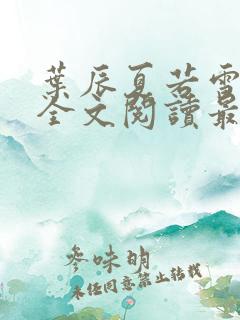 葉辰夏若雪
全文閱讀最
參味明
未经同意禁止转载